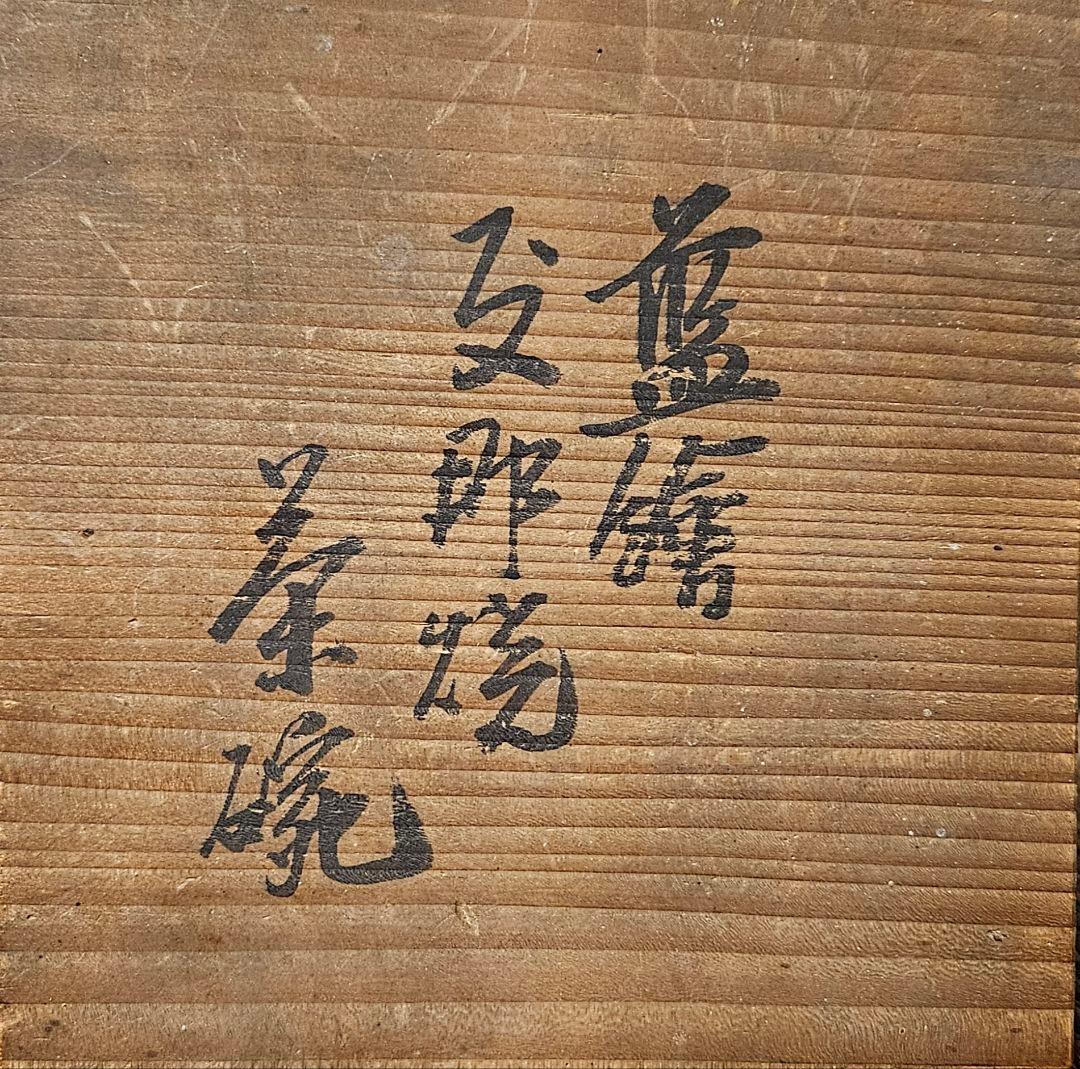 藍繪
支那焼
茶碗